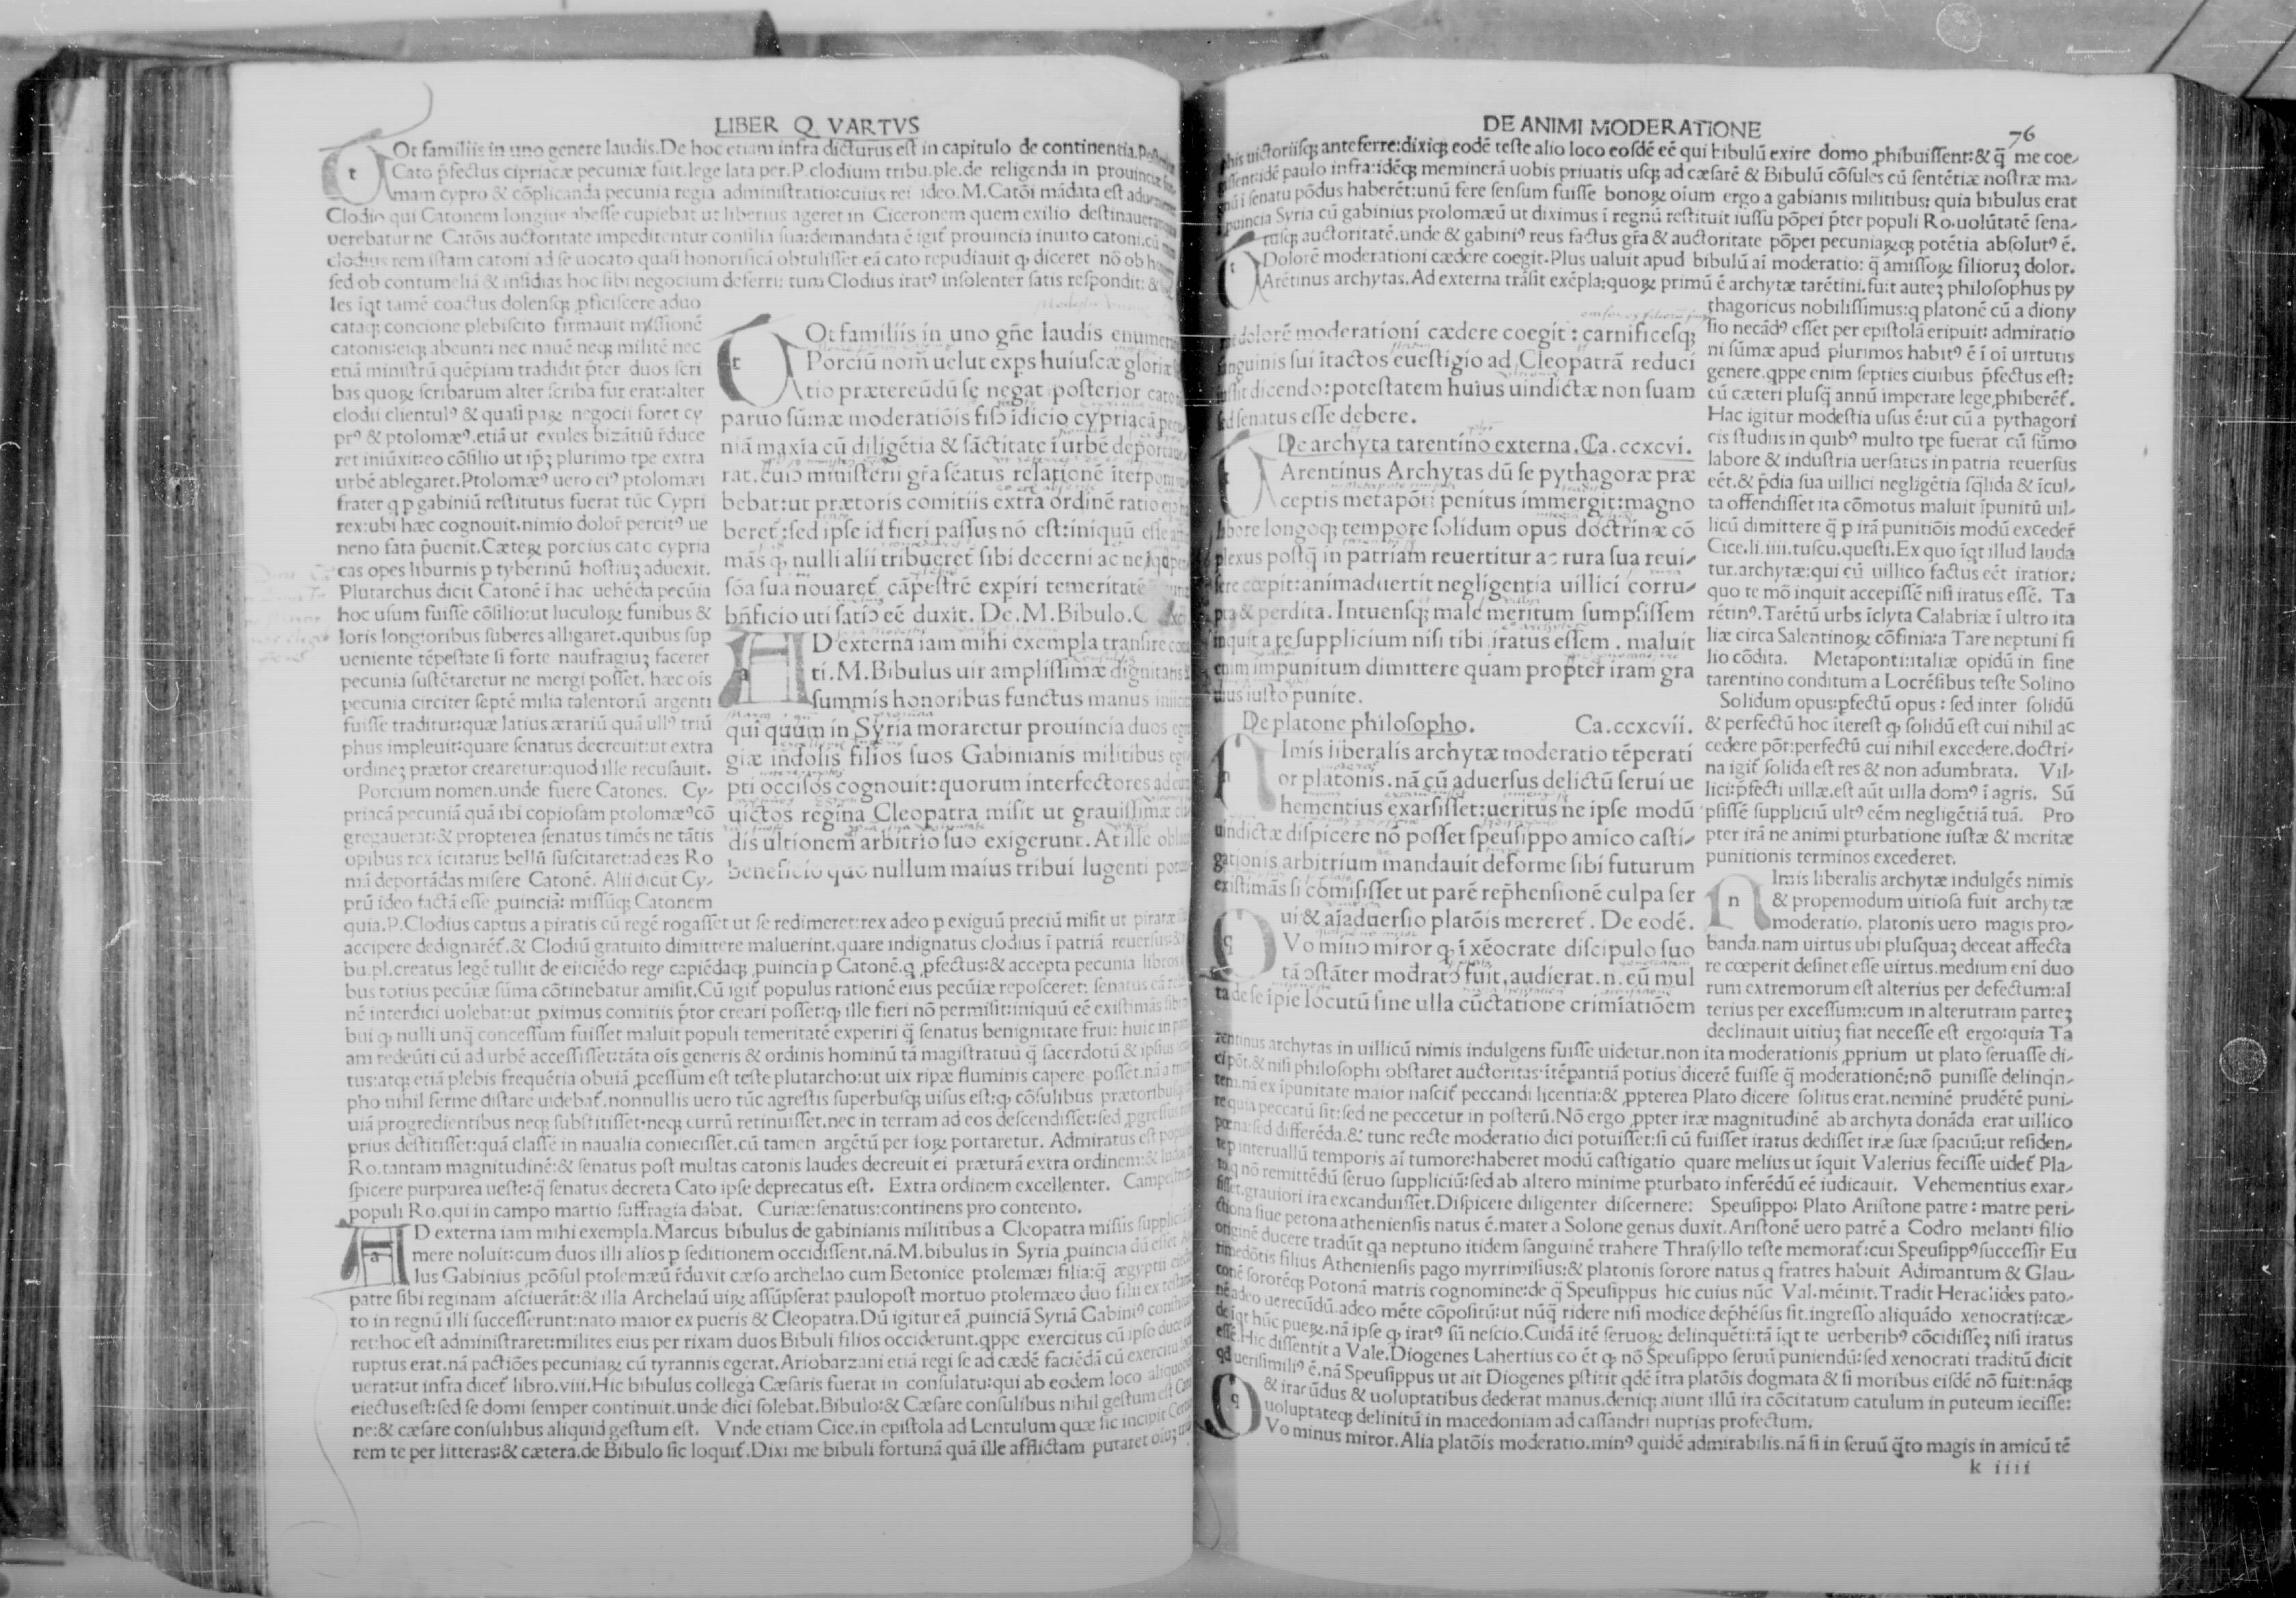 LIBER QVARTVS
Ot familiis in uno genere laudis.De hoc etiam infra dicturus est in capitulo de continentia.
Cato p̄fectus cipriacæ pecuniæ fuit.lege lata per.P.clodium tribu.ple.de religenda in prouinciæ
mam cypro & cōplicanda pecunia regia administratio:cuius rei ideo.M.Catōi mādata est
Clodio qui Catonem longius abesse cupiebat ut liberius ageret in Ciceronem quem exilio
uerebatur ne Catōis auctoritate impedirentur consilia sua:demandata ē igit̄ prouincia inuito catoni.cū
clodius rem istam catoni ad se uocato quasi honorificā obtulisset.eā cato repudiauit ꝙ diceret nō ob
sed ob contumeliā & insidias hoc sibi negocium deferri: tum Clodius iratꝰ insolenter satis respondit:
les īqt tamē coactus dolensqꝫ ꝓficiscere aduo
cataqꝫ concione plebiscito firmauit missionē
catonis:eiqꝫ abeunti nec nauē neqꝫ militē nec
etiā ministrū quēpiam tradidit p̄ter duos scri
bas quoꝝ scribarum alter scriba fur erat:alter
clodii clientulꝰ & quasi paꝝ negocii foret cy
prꝰ & ptolomæꝰ.etiā ut exules bizātiū r̄duce
ret iniūxit:eo cōsilio ut ip̄ꝫ plurimo tpe extra
urbē ablegaret.Ptolomæꝰ uero eiꝰ ptolomæi
frater q p gabiniū restitutus fuerat tūc Cypri
rex:ubi hæc cognouit.nimio dolor̄ percitꝰ ue
neno fata p̄uenit.Cæteꝝ porcius cato cypria
cas opes liburnis p tyberinū hostiuꝫ aduexit.
Plutarchus dicit Catonē ī hac uehēda pecūia
hoc usum fuisse cōsilio:ut luculoꝝ funibus &
loris longioribus suberes alligaret.quibus sup
ueniente tēpestate si forte naufragiuꝫ faceret
pecunia sustētaretur ne mergi posset. hæc oīs
pecunia circiter septē milia talentorū argenti
fuisse traditur:quæ latius ærariū quā ullꝰ triū
phus impleuit:quare senatus decreuit:ut extra
ordineꝫ prætor crearetur:quod ille recusauit.
Porcium nomen.unde fuere Catones. Cy-
priacā pecuniā quā ibi copiosam ptolomæꝰcō
gregauerat:& propterea senatus timēs ne tātis
opibus rex īcitatus bellū suscitaret:ad eas Ro
mā deportādas misere Catonē. Alii dicūt Cy-
prū ideo factā esse ꝓuinciā: missūqꝫ Catonem
Ot familiis in uno gn̄e laudis
Porciū nom̄ uelut exps huiuscæ
tio prætereūdū se negat posterior
paruo sūmæ moderatiōis fisͻ īdicio cypriacā
niā maxīa cū diligētia & sāctitate ī urbē
rat. cuiͻ ministerii gr̄a sēatus relationē
bebat:ut prætoris comitiis extra ordinē ratio
beret̄:sed ipse id fieri passus nō est:iniquū esse
mās ꝙ nulli alii tribueret̄ sibi decerni ac ne
sōa sua nouaret̄ cāpestrē expiri temeritatē
bn̄ficio uti satiͻ eē duxit. De.M.Bibulo.
AD externa iam mihi exempla transire
ti.M.Bibulus uir amplissimæ dignitatis
summis honoribus functus manus
qui quum in Syria moraretur prouincia duos
giæ indolis filios suos Gabinianis militibus
pti occisos cognouit:quorum interfectores ad
uictos regina Cleopatra misit ut grauissimæ
dis ultionem arbitrio suo exigerunt. At ille
beneficio quo nullum maius tribui lugenti
quia.P.Clodius captus a piratis cū regē rogasset ut se redimeret:rex adeo p exiguū preciū misit ut piratæ
accipere dedignarēt̄.& Clodiū gratuito dimittere maluerint.quare indignatus clodius ī patriā
bu.pl.creatus legē tullit de eiiciēdo rege capiēdaqꝫ ꝓuincia p Catonē.q ꝓfectus:& accepta pecunia
bus totius pecūiæ sūma cōtinebatur amisit.Cū igit̄ populus rationē eius pecūiæ reposceret: senatus
nē interdici uolebat:ut ꝓximus comitiis p̄tor creari posset:ꝙ ille fieri nō permisit:iniquū eē existimās
bui ꝙ nulli unq̄ concessum fuisset maluit populi temeritatē experiri q̄ senatus benignitate frui: huic in
am redeūti cū ad urbē accessisset:tāta oīs generis & ordinis hominū tā magistratuū q̄ sacerdotū & ipsius
tus:atqꝫ etiā plebis frequētia obuiā ꝓcessum est teste plutarcho:ut uix ripæ fluminis capere posset.
pho nihil ferme distare uidebat̄.nonnullis uero tūc agrestis superbusqꝫ uisus est:ꝙ cōsulibus
uiā progredientibus neqꝫ substitisset.neqꝫ currū retinuisset.nec in terram ad eos descendisset:sed
prius destitisset:quā classē in naualia coniecisset.cū tamen argētū per foꝝ portaretur. Admiratus est
Ro.tantam magnitudinē:& senatus post multas catonis laudes decreuit ei præturā extra ordinem:&
spicere purpurea ueste:q̄ senatus decreta Cato ipse deprecatus est. Extra ordinem excellenter.
populi Ro.qui in campo martio suffragia dabat. Curiæ:senatus:continens pro contento.
AD externa iam mihi exempla.Marcus bibulus de gabinianis militibus a Cleopatra misiis
mere noluit:cum duos illi alios p seditionem occidissent.nā.M.bibulus in Syria ꝓuincia dū esset
lus Gabinius ꝓcōsul ptolemæū r̄duxit cæso archelao cum Betonice ptolemæi filia:q̄ ægyptii
patre sibi reginam asciuerāt:& illa Archelaū uiꝝ assūpserat paulopost mortuo ptolemæo duo filii ex
to in regnū illi successerunt:nato maior ex pueris & Cleopatra.Dū igitur eā ꝓuinciā Syriā Gabiniꝰ
ret:hoc est administraret:milites eius per rixam duos Bibuli filios occiderunt.qppe exercitus cū ipso
ruptus erat.nā pactiōes pecuniaꝝ cū tyrannis egerat.Ariobarzani etiā regi se ad cædē faciēdā cū exercitu
uerat:ut infra dicet̄ libro.viii.Hic bibulus collega Cæsaris fuerat in consulatu:qui ab eodem loco
eiectus est:sed se domi semper continuit.unde dici solebat.Bibulo:& Cæsare consulibus nihil gestum est
ne:& cæsare consulibus aliquid gestum est. Vnde etiam Cice.in epistola ad Lentulum quæ sic incipit
rem te per litteras:& cætera.de Bibulo sic loquit̄.Dixi me bibuli fortunā quā ille afflictam putaret
DE ANIMI MODERATIONE
76
uictoriisqꝫ anteferre:dixiqꝫ eodē teste alio loco eosdē eē qui bibulū exire domo ꝓhibuissent:& q̄ me coe-
idē paulo infra:idēqꝫ meminerā uobis priuatis usqꝫ ad cæsarē & Bibulū cōsules cū sentētiæ nostræ ma-
ī senatu pōdus haberēt:unū fere sensum fuisse bonoꝝ oīum ergo a gabianis militibus: quia bibulus erat
ꝓuincia Syria cū gabinius prolomæū ut diximus ī regnū restituit iussu pōpei p̄ter populi Ro.uolūtatē sena-
tusqꝫ auctoritatē.unde & gabiniꝰ reus factus gr̄a & auctoritate pōpei pecuniaꝝqꝫ potētia absolutꝰ ē.
Dolorē moderationi cædere coegit.Plus ualuit apud bibulū ai moderatio: q̄ amissoꝝ filioruꝫ dolor.
Arētinus archytas.Ad externa trāsit exēpla:quoꝝ primū ē archytæ tarētini.fuit auteꝫ philosophus py
dolorē moderationi cædere coegit : carnificesqꝫ
sanguinis sui ītactos euestigio ad Cleopatrā reduci
iussit dicendo:potestatem huius uindictæ non suam
sed senatus esse debere.
De archyta tarentino externa. Ca.ccxcvi.
Arentinus Archytas dū se pythagoræ præ
ceptis metapōti penitus immergit:magno
labore longoqꝫ tempore solidum opus doctrinæ cō
plexus postq̄ in patriam reuertitur ac rura sua reui-
sere cœpit:animaduertit negligentia uillici corru-
pta & perdita. Intuensqꝫ male meritum sumpsissem
inquit a te supplicium nisi tibi iratus essem . maluit
enim impunitum dimittere quam propter iram gra
uius iusto punire.
De platone philosopho. Ca.ccxcvii.
Imis liberalis archytæ moderatio tēperati
or platonis.nā cū aduersus delictū serui ue
hementius exarsisset:ueritus ne ipse modū
uindictæ dispicere nō posset speusippo amico casti-
gationis arbitrium mandauit deforme sibi futurum
existimās si comisisset ut parē rep̄hensionē culpa ser
ui & aiaduersio platōis mereret̄. De eodē.
Vo minͻ miror ꝙ ī xēocrate discipulo suo
tā ͻstāter modratͻ fuit.audierat.n.eū mul
ta de se ipie locutū sine ulla cūctatione crimiatiōem
thagoricus nobilissimus:q platonē cū a diony
sio necādꝰ esset per epistolā eripuit: admiratio
ni sūmæ apud plurimos habitꝰ ē ī oī uirtutis
genere.qppe enim septies ciuibus p̄fectus est:
cū cæteri plusq̄ annū imperare lege ꝓhiberēt̄.
Hac igitur modestia usus ē:ut cū a pythagori
cis studiis in quibꝰ multo tpe fuerat cū sūmo
labore & industria uersatus in patria reuersus
eēt.& p̄dia sua uillici negligētia sq̄lida & īcul-
ta offendisset ita cōmotus maluit īpunitū uil-
licū dimittere q̄ p irā punitiōis modū exceder̄
Cice.li.iiii.tuscu.questi.Ex quo īqt illud lauda
tur.archytæ:qui cū uillico factus eēt iratior:
quo te mō inquit accepissē nisi iratus essē. Ta
rētinꝰ.Tarētū urbs īclyta Calabriæ ī ultro ita
liæ circa Salentinoꝝ cōfinia:a Tare neptuni fi
lio cōdita. Metaponti:italiæ opidū in fine
tarentino conditum a Locrēsibus teste Solino
Solidum opus:pfectū opus : sed inter solidū
& perfectū hoc īterest ꝙ solidū est cui nihil ac
cedere pōt:perfectū cui nihil excedere.doctri-
na igit̄ solida est res & non adumbrata. Vil-
lici:p̄fecti uillæ.est aūt uilla domꝰ ī agris. Sū
psissē suppliciū ultꝰ eēm negligētiā tuā. Pro
pter irā ne animi pturbatione iustæ & meritæ
punitionis terminos excederet.
Imis liberalis archytæ indulgēs nimis
& propemodum uitiosa fuit archytæ
moderatio. platonis uero magis pro-
banda.nam uirtus ubi plusquaꝫ deceat affecta
re cœperit desinet esse uirtus.medium eni duo
rum extremorum est alterius per defectum:al
terius per excessum:cum in alterutram parteꝫ
declinauit uitiuꝫ fiat necesse est ergo:quia Ta
rentinus archytas in uillicū nimis indulgens fuisse uidetur.non ita moderationis ꝓprium ut plato seruasse di-
ci pōt.& nisi philosophi obstaret auctoritas.ītēpantiā potius dicerē fuisse q̄ moderationē:nō punisse delinqn-
tem.nā ex īpunitate maior nascit̄ peccandi licentia:& ꝓpterea Plato dicere solitus erat.neminē prudētē puni-
re quia peccatū sit:sed ne peccetur in posterū.Nō ergo ꝓpter iræ magnitudinē ab archyta donāda erat uillico
pœna:sed differēda.& tunc recte moderatio dici potuisset:si cū fuisset iratus dedisset iræ suæ spaciū:ut residen-
te p interuallū temporis ai tumore:haberet modū castigatio quare melius ut īquit Valerius fecisse uidet̄ Pla-
to.q nō remittēdū seruo suppliciū:sed ab altero minime pturbato inferēdū eē iudicauit. Vehementius exar-
sisset.grauiori ira excanduisset.Dispicere diligenter discernere: Speusippo: Plato Aristone patre : matre peri-
ctiona siue petona atheniensis natus ē.mater a Solone genus duxit.Aristonē uero patrē a Codro melanti filio
originē ducere tradūt qa neptuno itidem sanguinē trahere Thrasyllo teste memorat̄:cui Speusippꝰsuccessit Eu
rimedōtis filius Atheniensis pago myrrimisius:& platonis sorore natus q fratres habuit Adimantum & Glau-
conē sororēqꝫ Potonā matris cognomine:de q̄ Speusippus hic cuius nūc Val.meīnit.Tradit Heraclides pato-
nē adeo uerecūdū.adeo mēte cōpositū:ut nūq̄ ridere nisi modice dep̄hēsus sit.ingresso aliquādo xenocrati:cæ-
de īqt hūc pueꝝ.nā ipse ꝙ iratꝰ sū nescio.Cuidā itē seruoꝝ delinquēti:tā īqt te uerberibꝰ cōcidisseꝫ nisi iratus
essē.Hic dissentit a Vale.Diogenes Lahertius eo ēt ꝙ nō Speusippo seruū puniendū:sed xenocrati traditū dicit
qd uerisimiliꝰ ē.nā Speusippus ut ait Diogenes pstitit qdē ītra platōis dogmata & si moribus eisdē nō fuit:nāqꝫ
& iracūdus & uoluptatibus dederat manus.deniqꝫ aiunt illū ira cōcitatum catulum in puteum iecisse:
uoluptateqꝫ delinitū in macedoniam ad cassandri nuptias profectum.
Vo minus miror.Alia platōis moderatio.minꝰ quidē admirabilis.nā si in seruū q̄to magis in amicū tē
k iiii